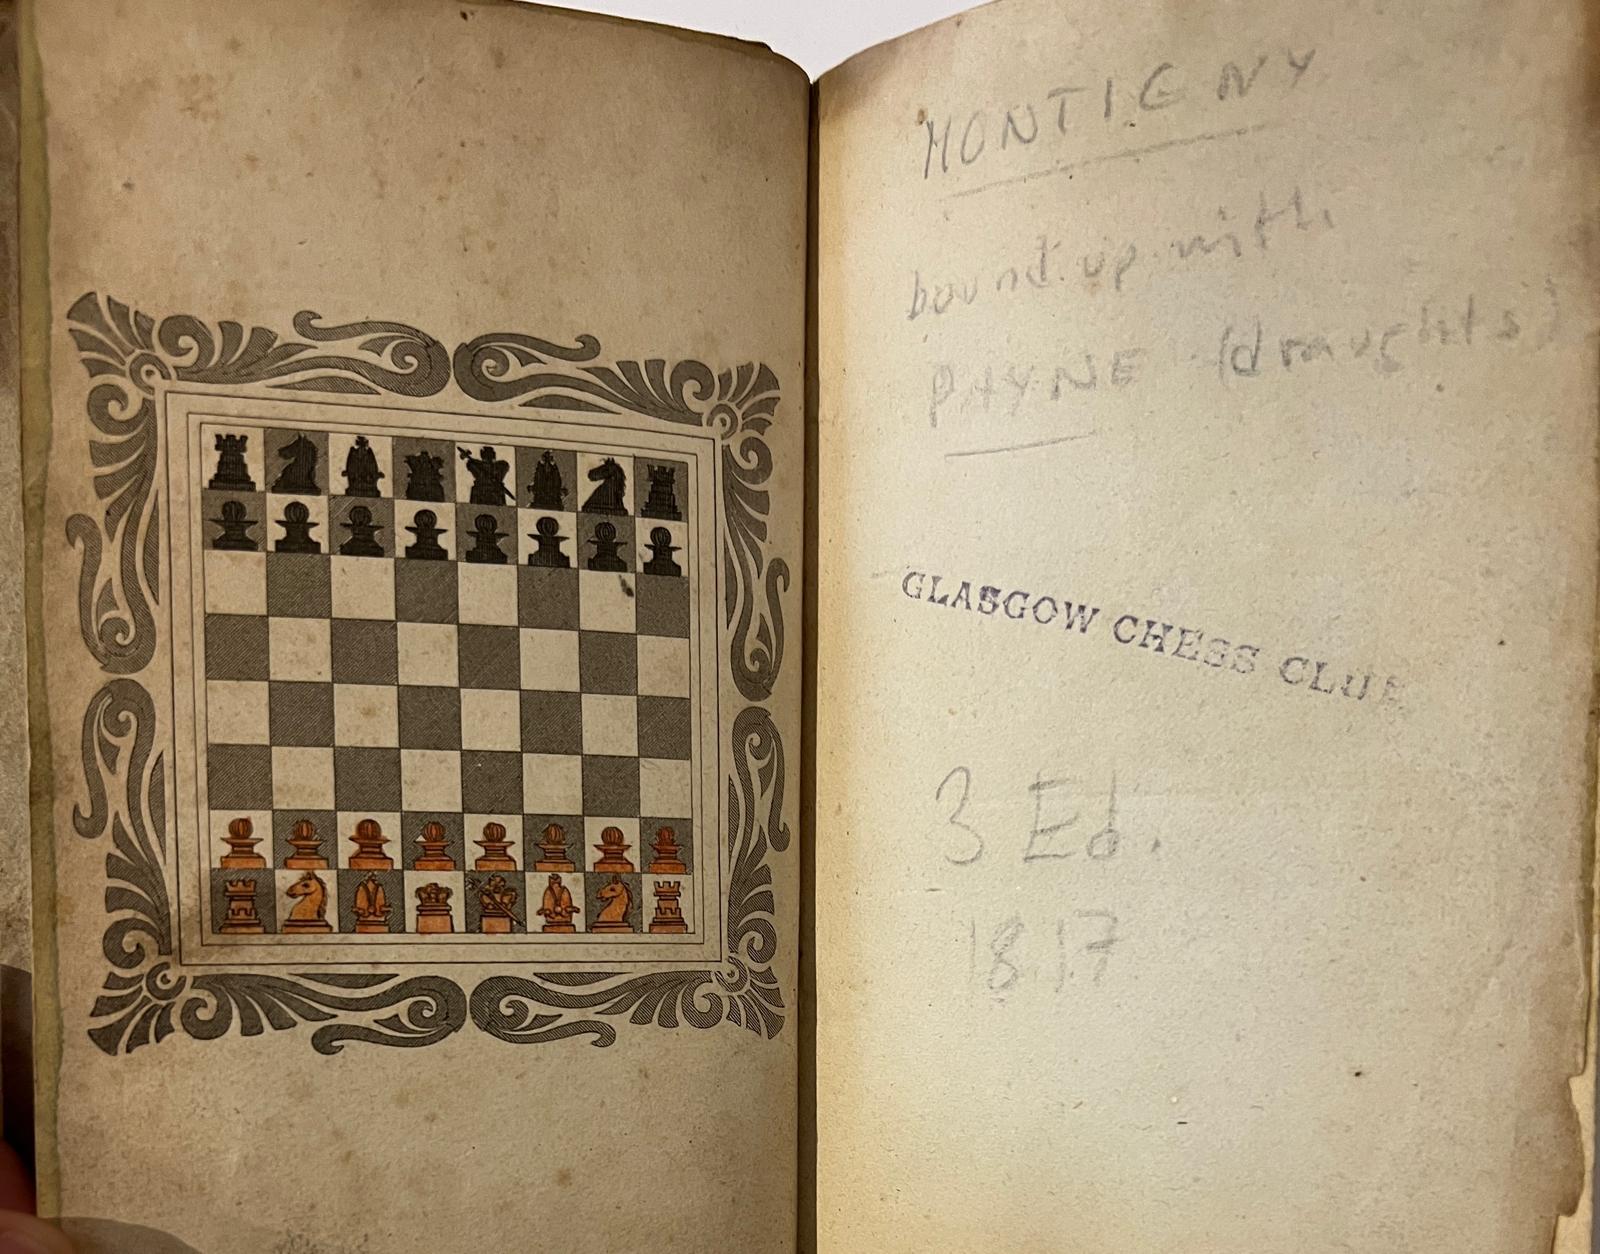 MONTIGNY
bound up with
PAYNE (draughts)
GLASGOW CHESS CLUB
3 Ed.
1817